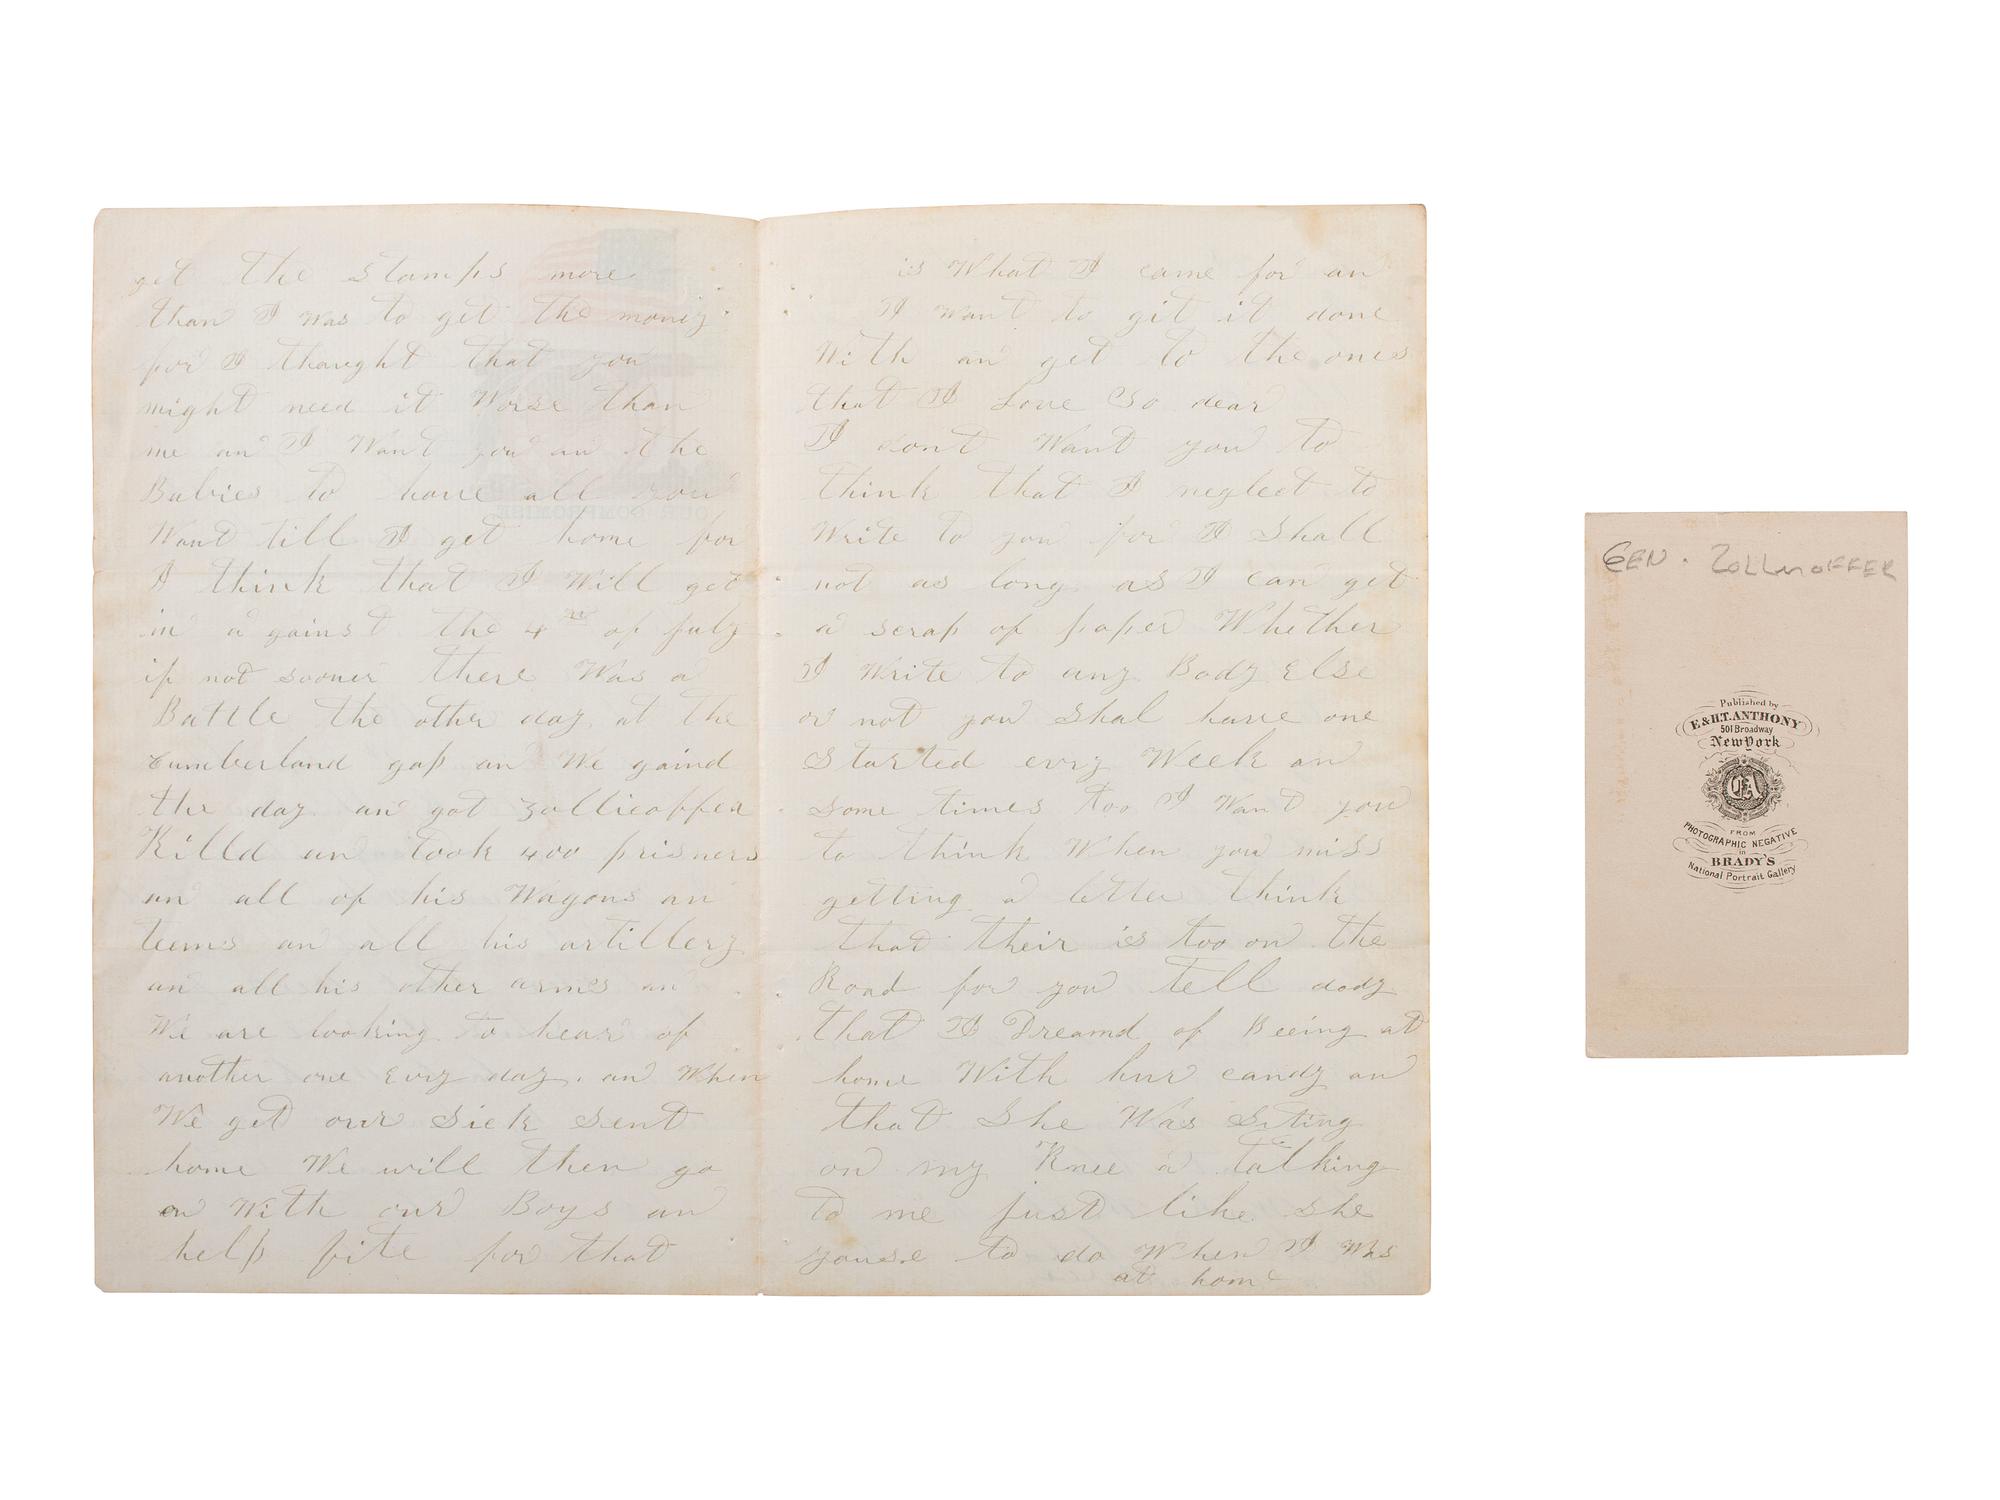 get the stamps more
than I Was to get the money
for I thaught that you
might need it Worse than
me an I Want you an the
Babies to have all you
Want till I get home for
I think that I Will get
in a gainst the 4th of July
if not sooner there Was a
Battle the other day at the
Cumberland gap an We gaind
the day an got Zollicoffer
Killd an took 400 prisners
an all of his Wagons an
teems an all his artillery
an all his other arms an
We are looking to hear of
another one Evry day. an When
We get our Sick Sent
home We will then go
on With our Boys an
help fite for that
is What I came for an
I Want to git it done
With an get to the ones
that I Love So dear
I dont Want you to
think that I neglect to
Write to you for I Shall
not as long as I can get
a scrap of paper Whether
I Write to any Body Else
or not you Shal have one
Started evry Week an
some times too I Want you
to think When you miss
getting a letter think
that their is too on the
Road for you tell dody
that I Dreamd of Beeing at
home With hur candy an
that She Was Siting
on my Knee a talking
to me just like she
youse to do When I Was
at home
OUR COMPROMISE
GEN. ZOLLICOFFER
Published by
E & H.T. ANTHONY
501 Broadway
New York
EA
FROM
PHOTOGRAPHIC NEGATIVE
in
BRADY'S
National Portrait Gallery